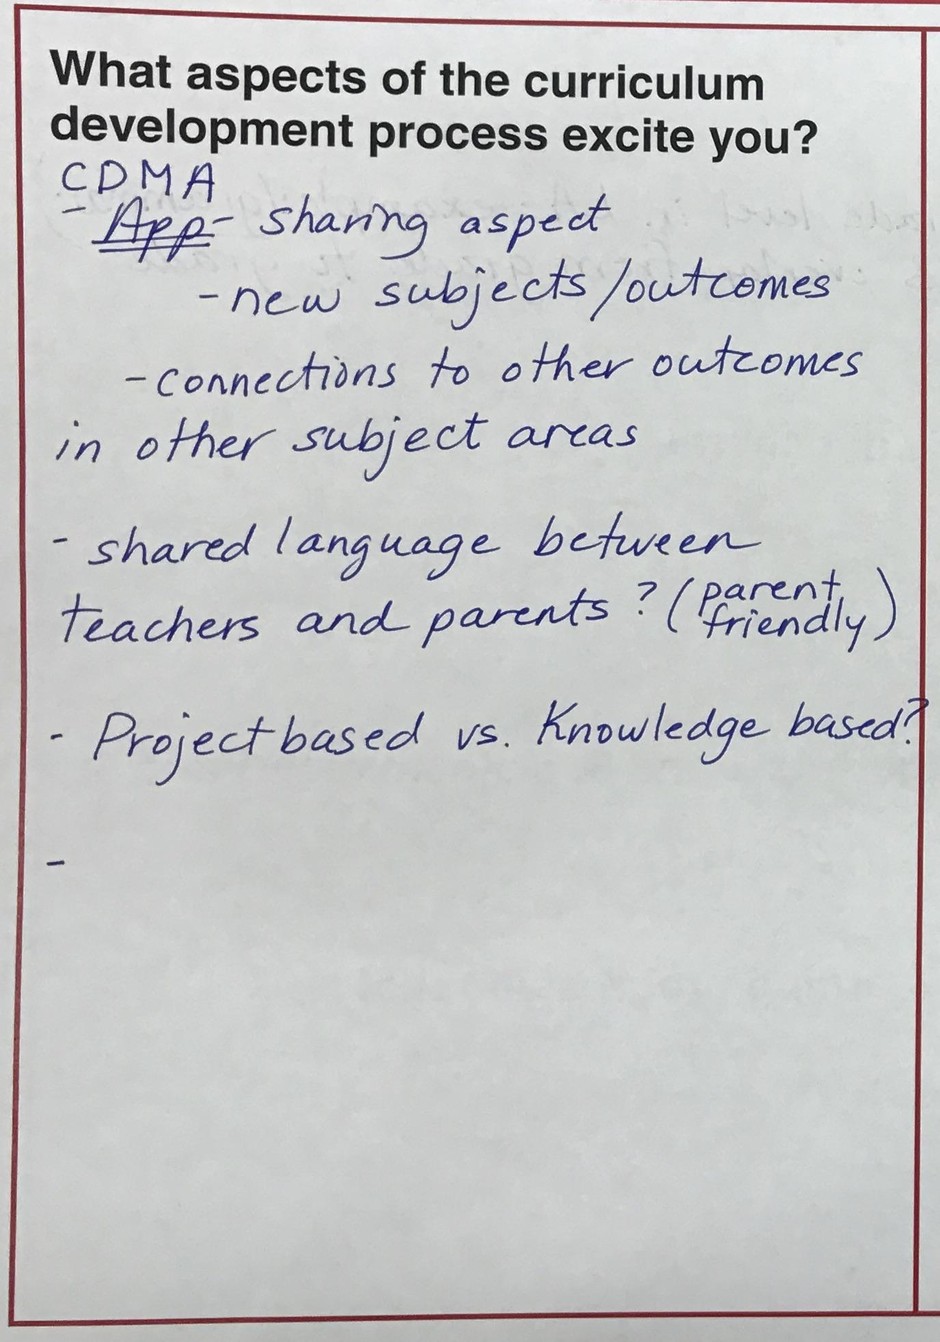 What aspects of the curriculum
development process excite you?
CDMA
- App - sharing aspect
- new subjects/outcomes
- connections to other outcomes
in other subject areas
- shared language between
teachers and parents? (parent friendly)
- Project based vs. Knowledge based?
-